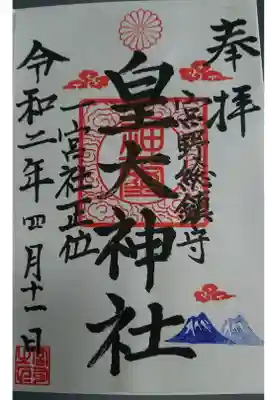 奉拝
宮野総鎮守
皇大神社
一宮社正位
令和二年四月十一日